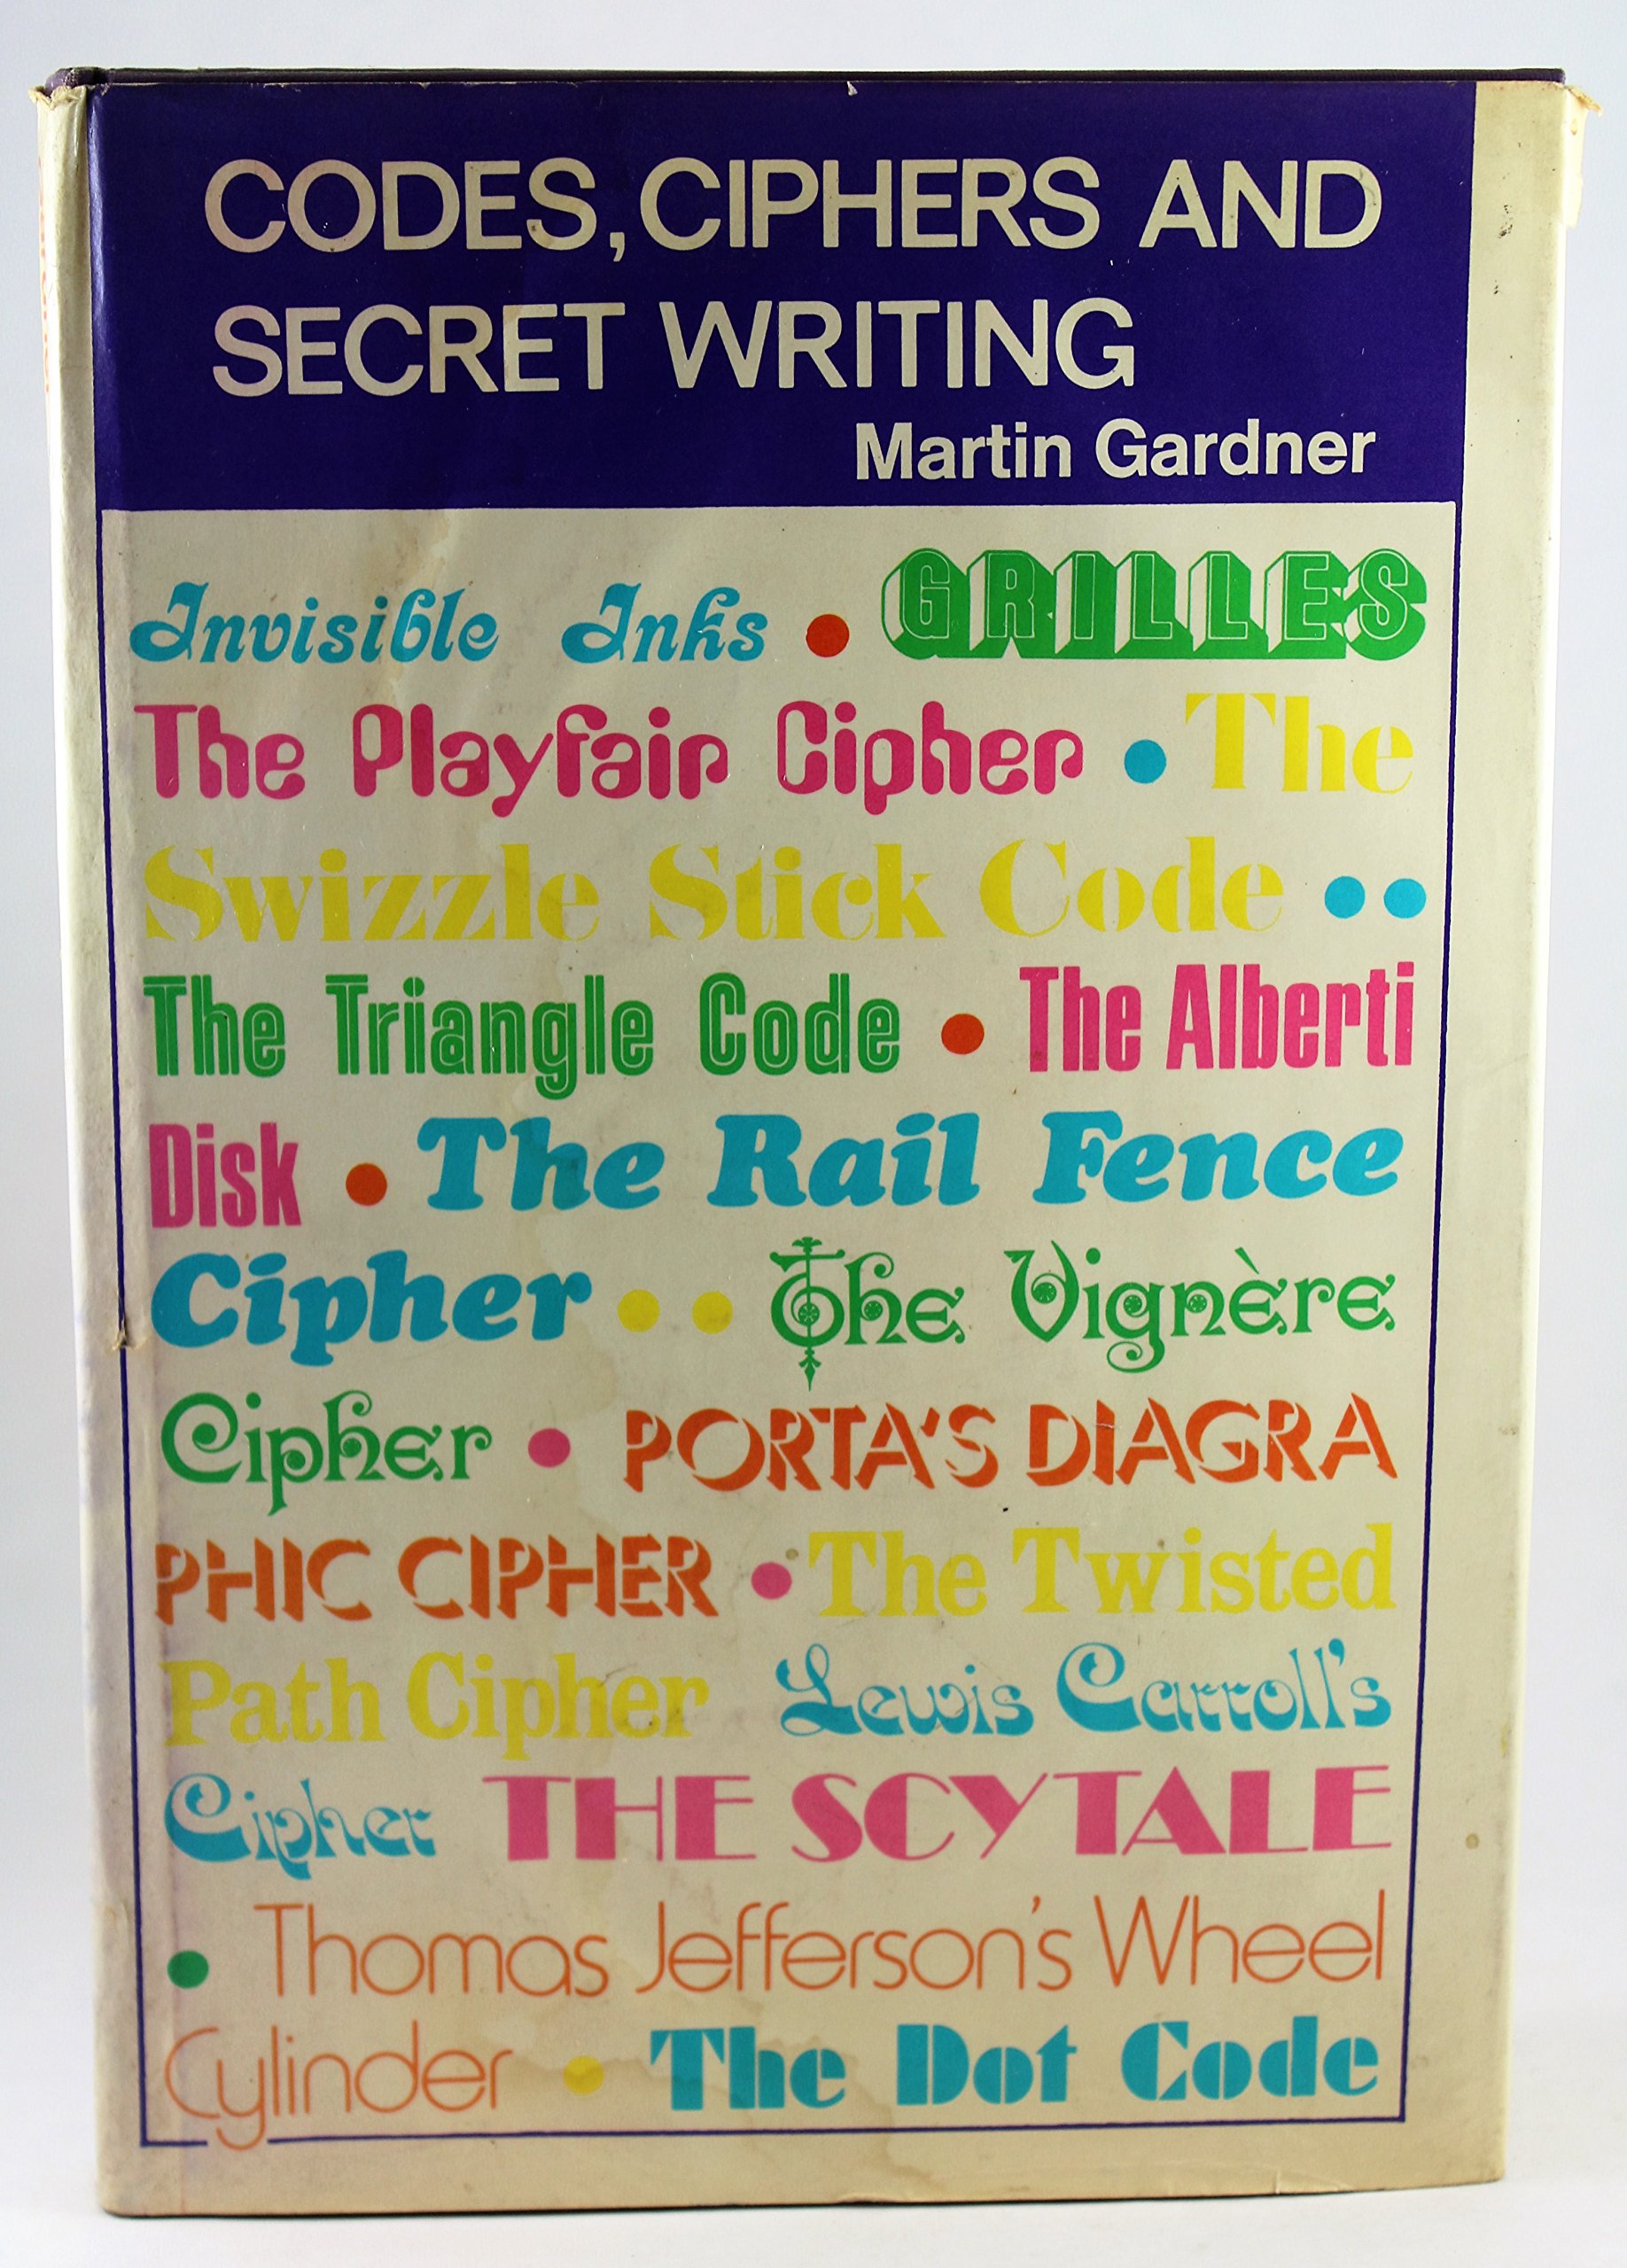 CODES, CIPHERS AND
SECRET WRITING
Martin Gardner
Invisible Inks • GRILLES
The Playfair Cipher • The
Swizzle Stick Code ••
The Triangle Code • The Alberti
Disk • The Rail Fence
Cipher •• The Vignère
Cipher • PORTA'S DIAGRA
PHIC CIPHER • The Twisted
Path Cipher Lewis Carroll's
Cipher THE SCYTALE
• Thomas Jefferson's Wheel
Cylinder • The Dot Code